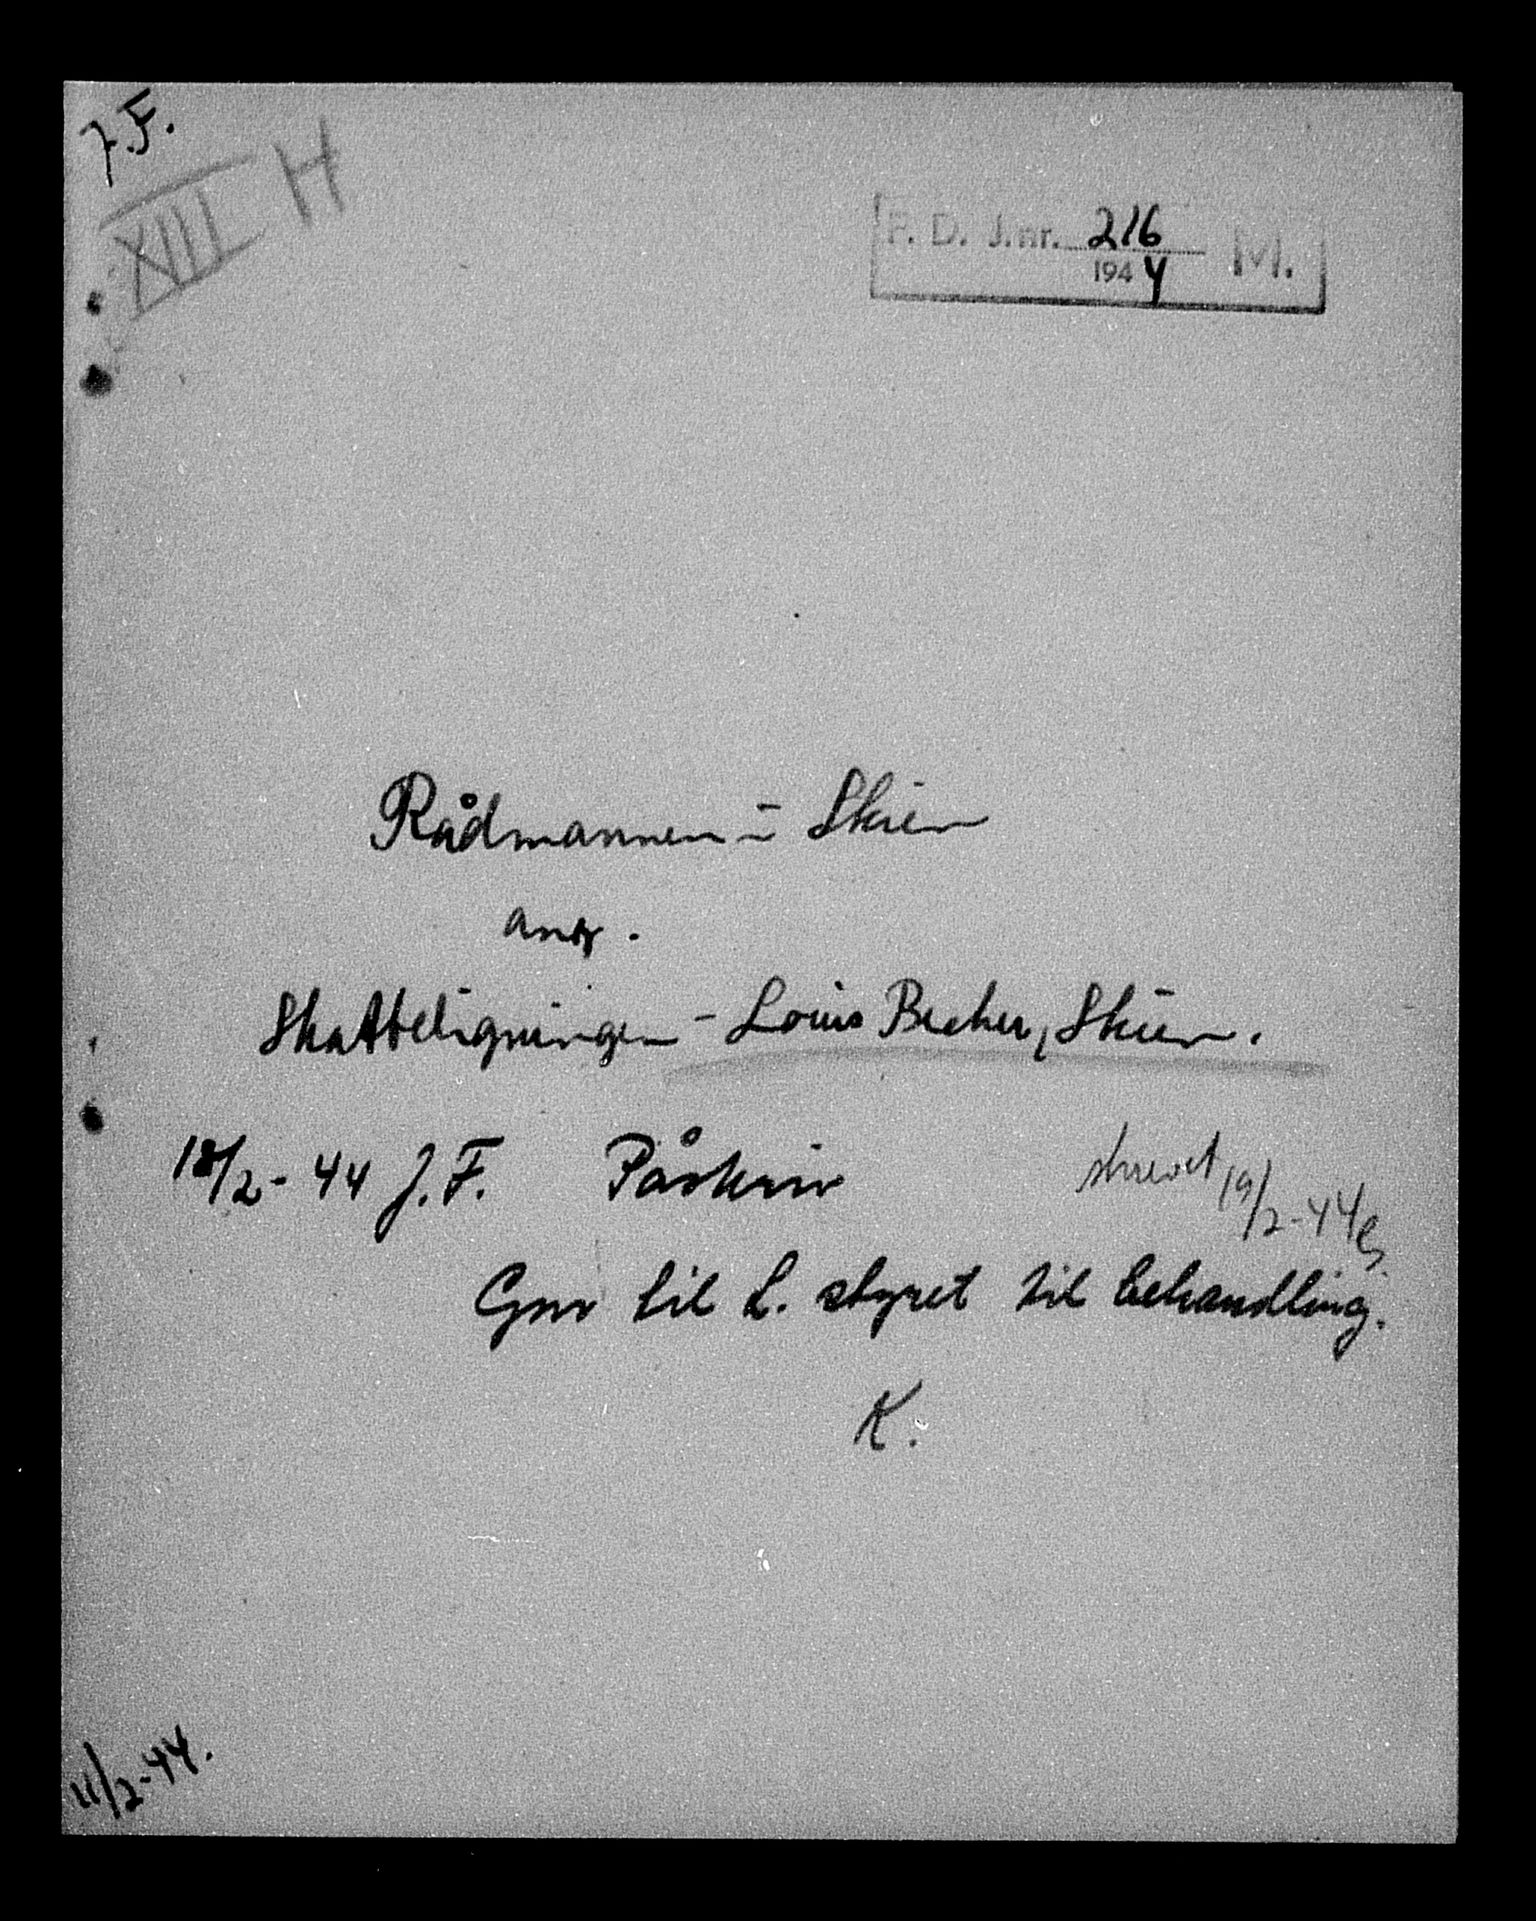 J.F.
XIII H
F. D. J.nr. 216 M.
1944
Rådmannen i Skien
ang.
Skattteligningen - Louis Becker, Skien.
18/2 - 44 J.F. Påskriv
skrevet 19/2-44
til L. styret til behandling.
K.
11/2-44.